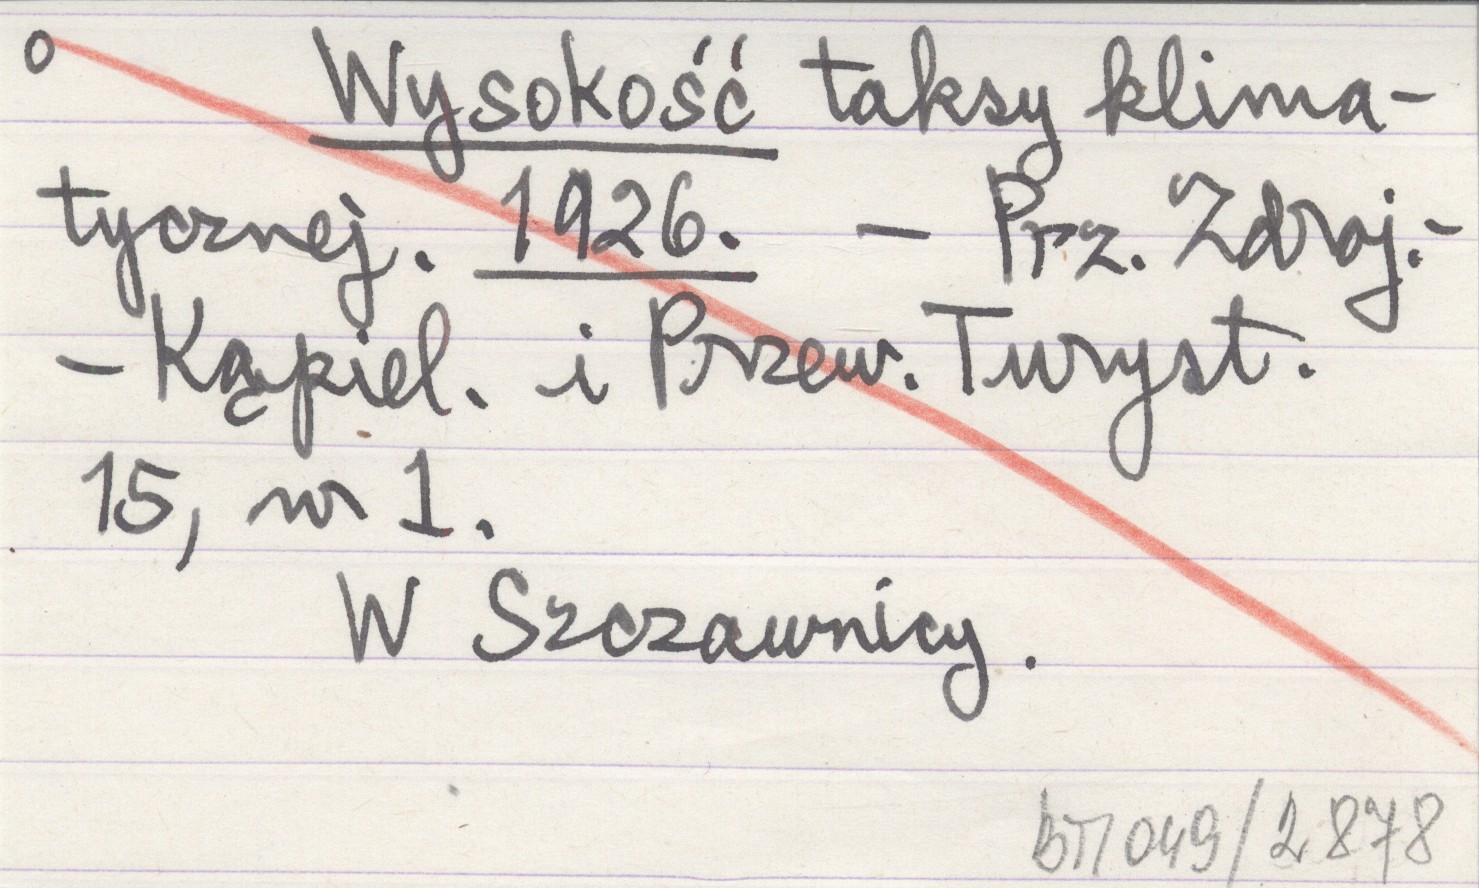 o Wysokość taksy klima-
tycznej. 1926. - Prz. Zdroj.-
- Kąpiel. i Przew. Turyst.
15, nr 1.
W Szczawnicy.
049/2878